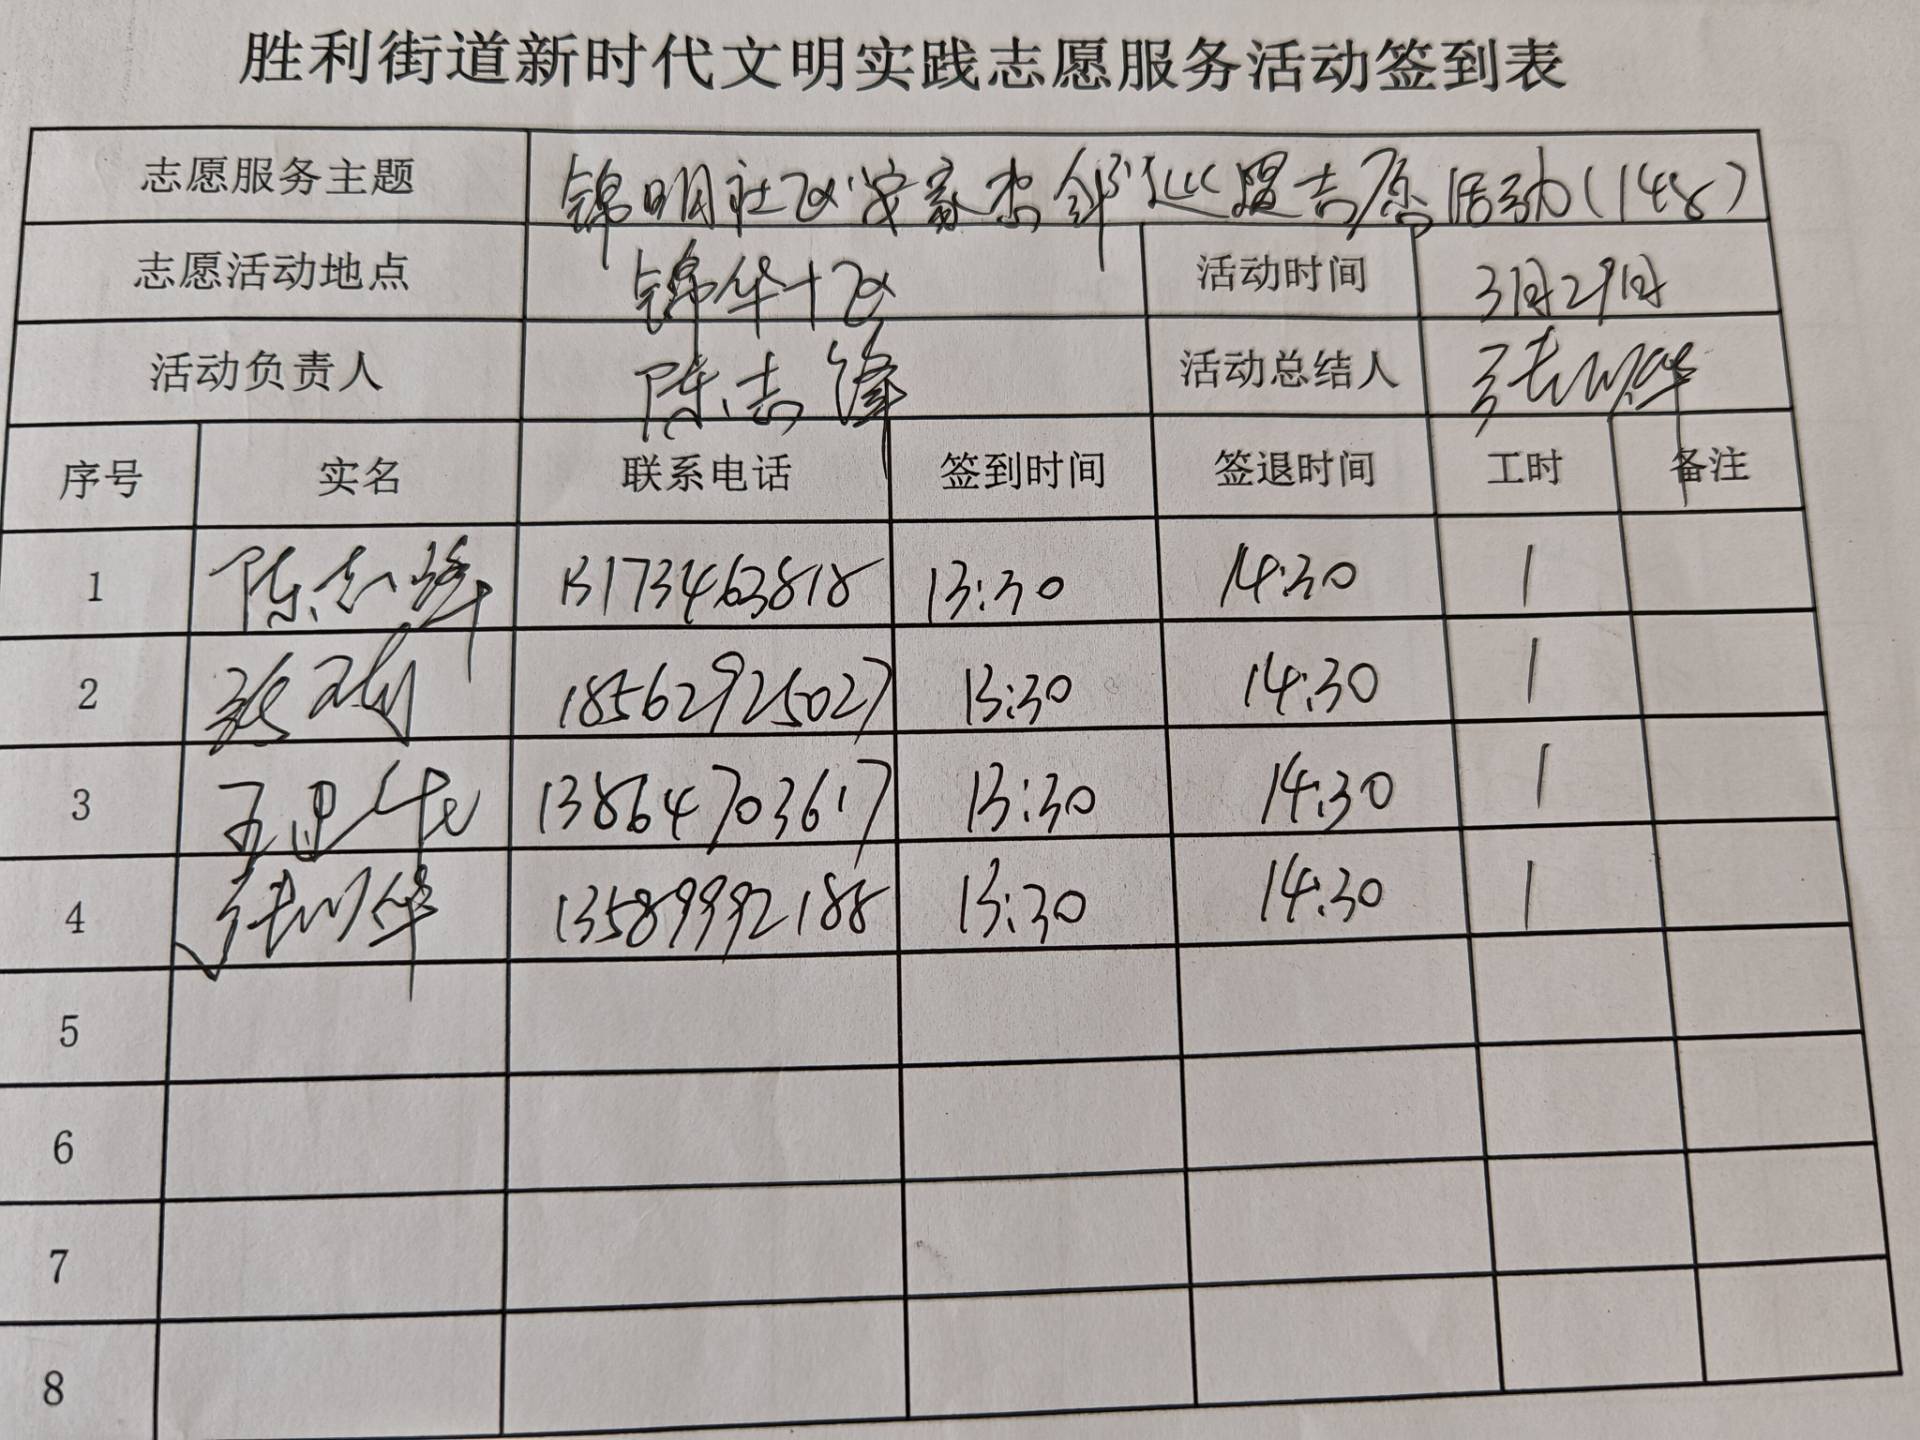 胜利街道新时代文明实践志愿服务活动签到表
志愿服务主题 锦明社区"安家杰邻"巡逻志愿活动(148)
志愿活动地点 锦华十区 活动时间 3月29日
活动负责人 陈志锋 活动总结人 张
序号 实名 联系电话 签到时间 签退时间 工时 备注
1 陈志锋 13173463818 13:30 14:30 1
2 18562925027 13:30 14:30 1
3 王 13864703617 13:30 14:30 1
4 张 13589992188 13:30 14:30 1
5
6
7
8